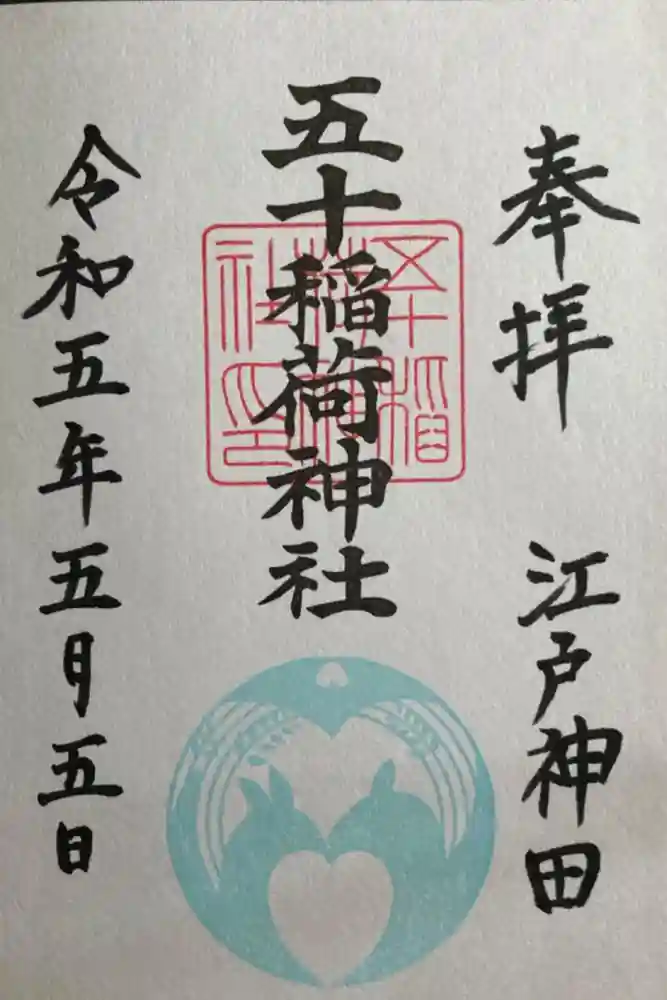 奉拝
江戸神田
五十稲荷神社
五十稲荷神社印
令和五年五月五日